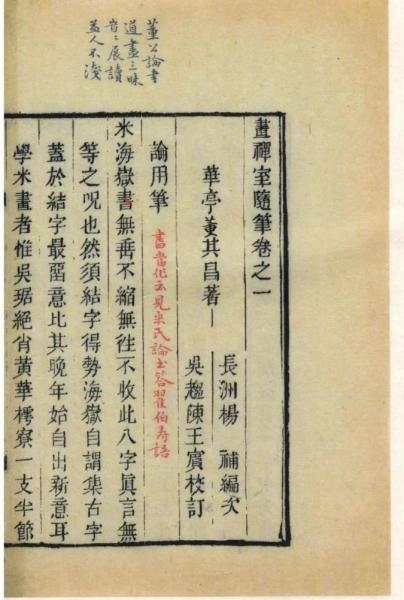 董公論書
道盡三昧
展讀
益人不淺
畫禪室隨筆卷之一
華亭董其昌著
長洲楊 補編次
吳趨陳王賓校訂
論用筆
書當作去見米氏論書答翟伯壽語
米海嶽書無垂不縮無往不收此八字眞言無
等之咒也然須結字得勢海嶽自謂集古字
蓋於結字最留意比其晚年始自出新意耳
學米畫者惟吳琚絕肖黃華樗寮一支半節